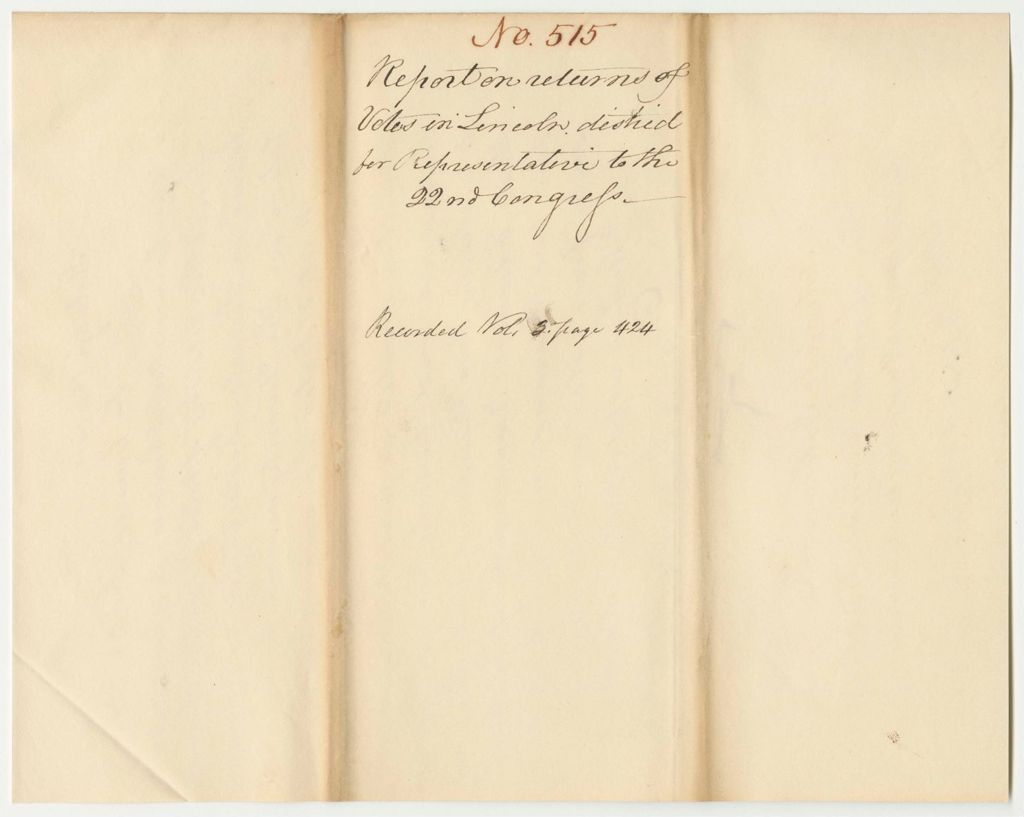 No. 515
Report on returns of
Votes in Lincoln district
for Representative to the
22nd Congress.
Recorded Vol. 3. page 424